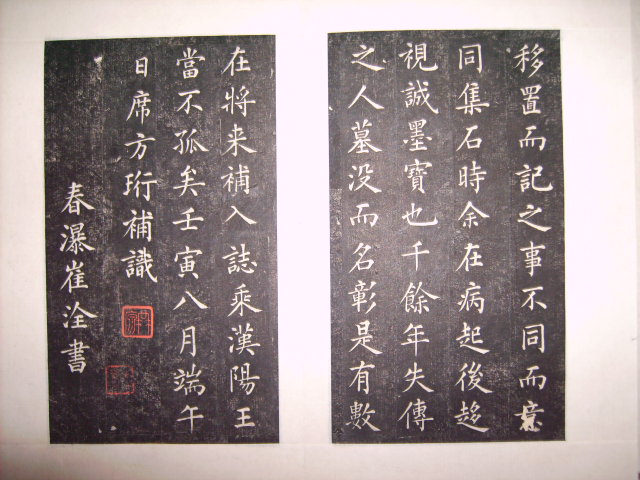 移置而記之事不同而意
同集石時余在病起後趍
視誠墨寶也千餘年失傳
之人墓没而名彰是有數
在將来補入誌乘漢陽王
當不孤矣壬寅八月端午
日席方珩補識
春瀑崔洤書